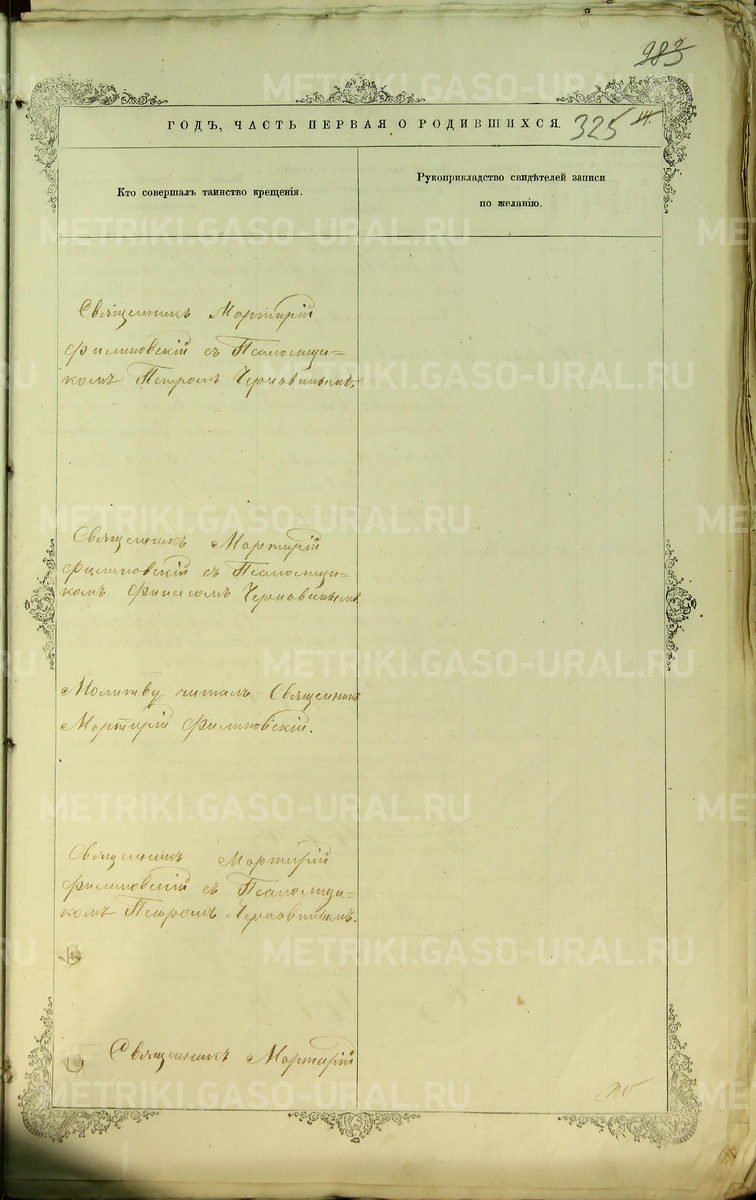 983
ГОДЪ, ЧАСТЬ ПЕРВАЯ О РОДИВШИХСЯ. 325
Кто совершалъ таинство крещенія.
Рукоприкладство свидѣтелей записи
по желанію.
Священникъ Мартирій
Филиповскій съ Псаломщи=
комъ Петромъ Черновинымъ.
Священникъ Мартирій
Филиповскій съ Псаломщи=
комъ Черновинымъ
Молитву читалъ Священникъ
Мартирій Филиповскій.
Священникъ Мартирій
Филиповскій съ Псаломщи=
комъ Петромъ Черновинымъ.
Священникъ Мартирій
METRIKI.GASO-URAL.RU